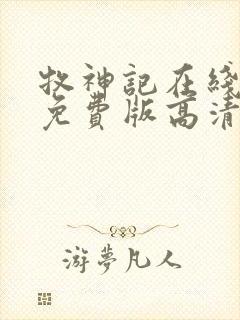 牧神記在綫
免費版高清
游夢凡人